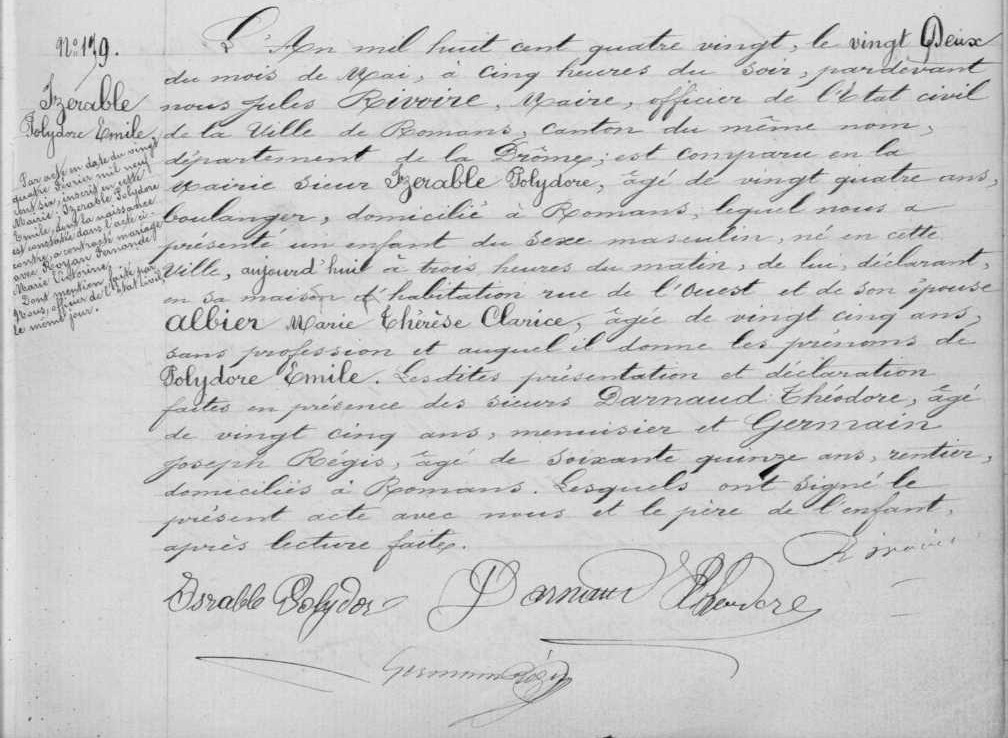 N° 179.
Izerable
Polydore Emile.
Par acte en date du vingt
quatre Février mil neuf
cent six, inscrit en cette
Mairie, Izerable Polydore
Emile, dont la naissance
est constatée dans l'acte ci-
contre, a contracté mariage
avec Fernande
Marie Victorine.
Dont mention faite par
Nous, officier de l'Etat civil,
le même jour.
L'An mil huit cent quatre vingt, le vingt Deux
du mois de Mai, à cinq heures du soir, pardevant
nous Jules Rivoire, Maire, officier de l'Etat civil
de la Ville de Romans, canton du même nom,
département de la Drôme; est comparu en la
Mairie sieur Izerable Polydore, âgé de vingt quatre ans,
boulanger, domicilié à Romans, lequel nous a
présenté un enfant du sexe masculin, né en cette
Ville, aujourd'hui à trois heures du matin, de lui, déclarant,
en sa maison d'habitation rue de l'Ouest et de son épouse
Albier Marie Thérèse Clarice, âgée de vingt cinq ans,
sans profession et auquel il donne les prénoms de
Polydore Emile. Lesdites présentation et déclaration
faites en présence des sieurs Darnaud Théodore, âgé
de vingt cinq ans, menuisier et Germain
Joseph Régis, âgé de soixante quinze ans, rentier,
domiciliés à Romans. Lesquels ont signé le
présent acte avec nous et le père de l'enfant,
après lecture faite.
Rivoire
Israble Polydor Darnaud Théodore
Germain Régis